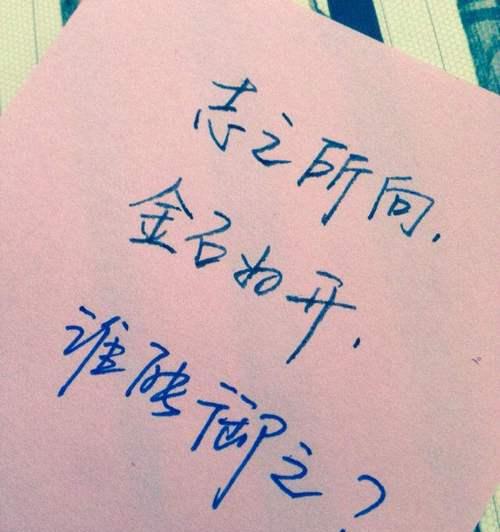 志之所向，
金石为开，
谁能御之？